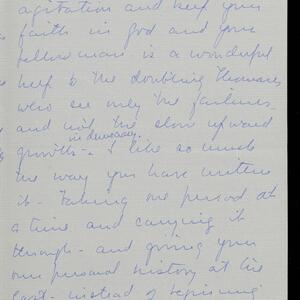 agitation and keep your
faith in god and your
fellow man is a wonderful
help to the doubting thousands
who see only the failures
and not the slow upward
in democracy.
growth - I like so much
the way you have written
it - taking one period at
a time and carrying it
through - and giving your
own personal history at the
last - instead of beginning